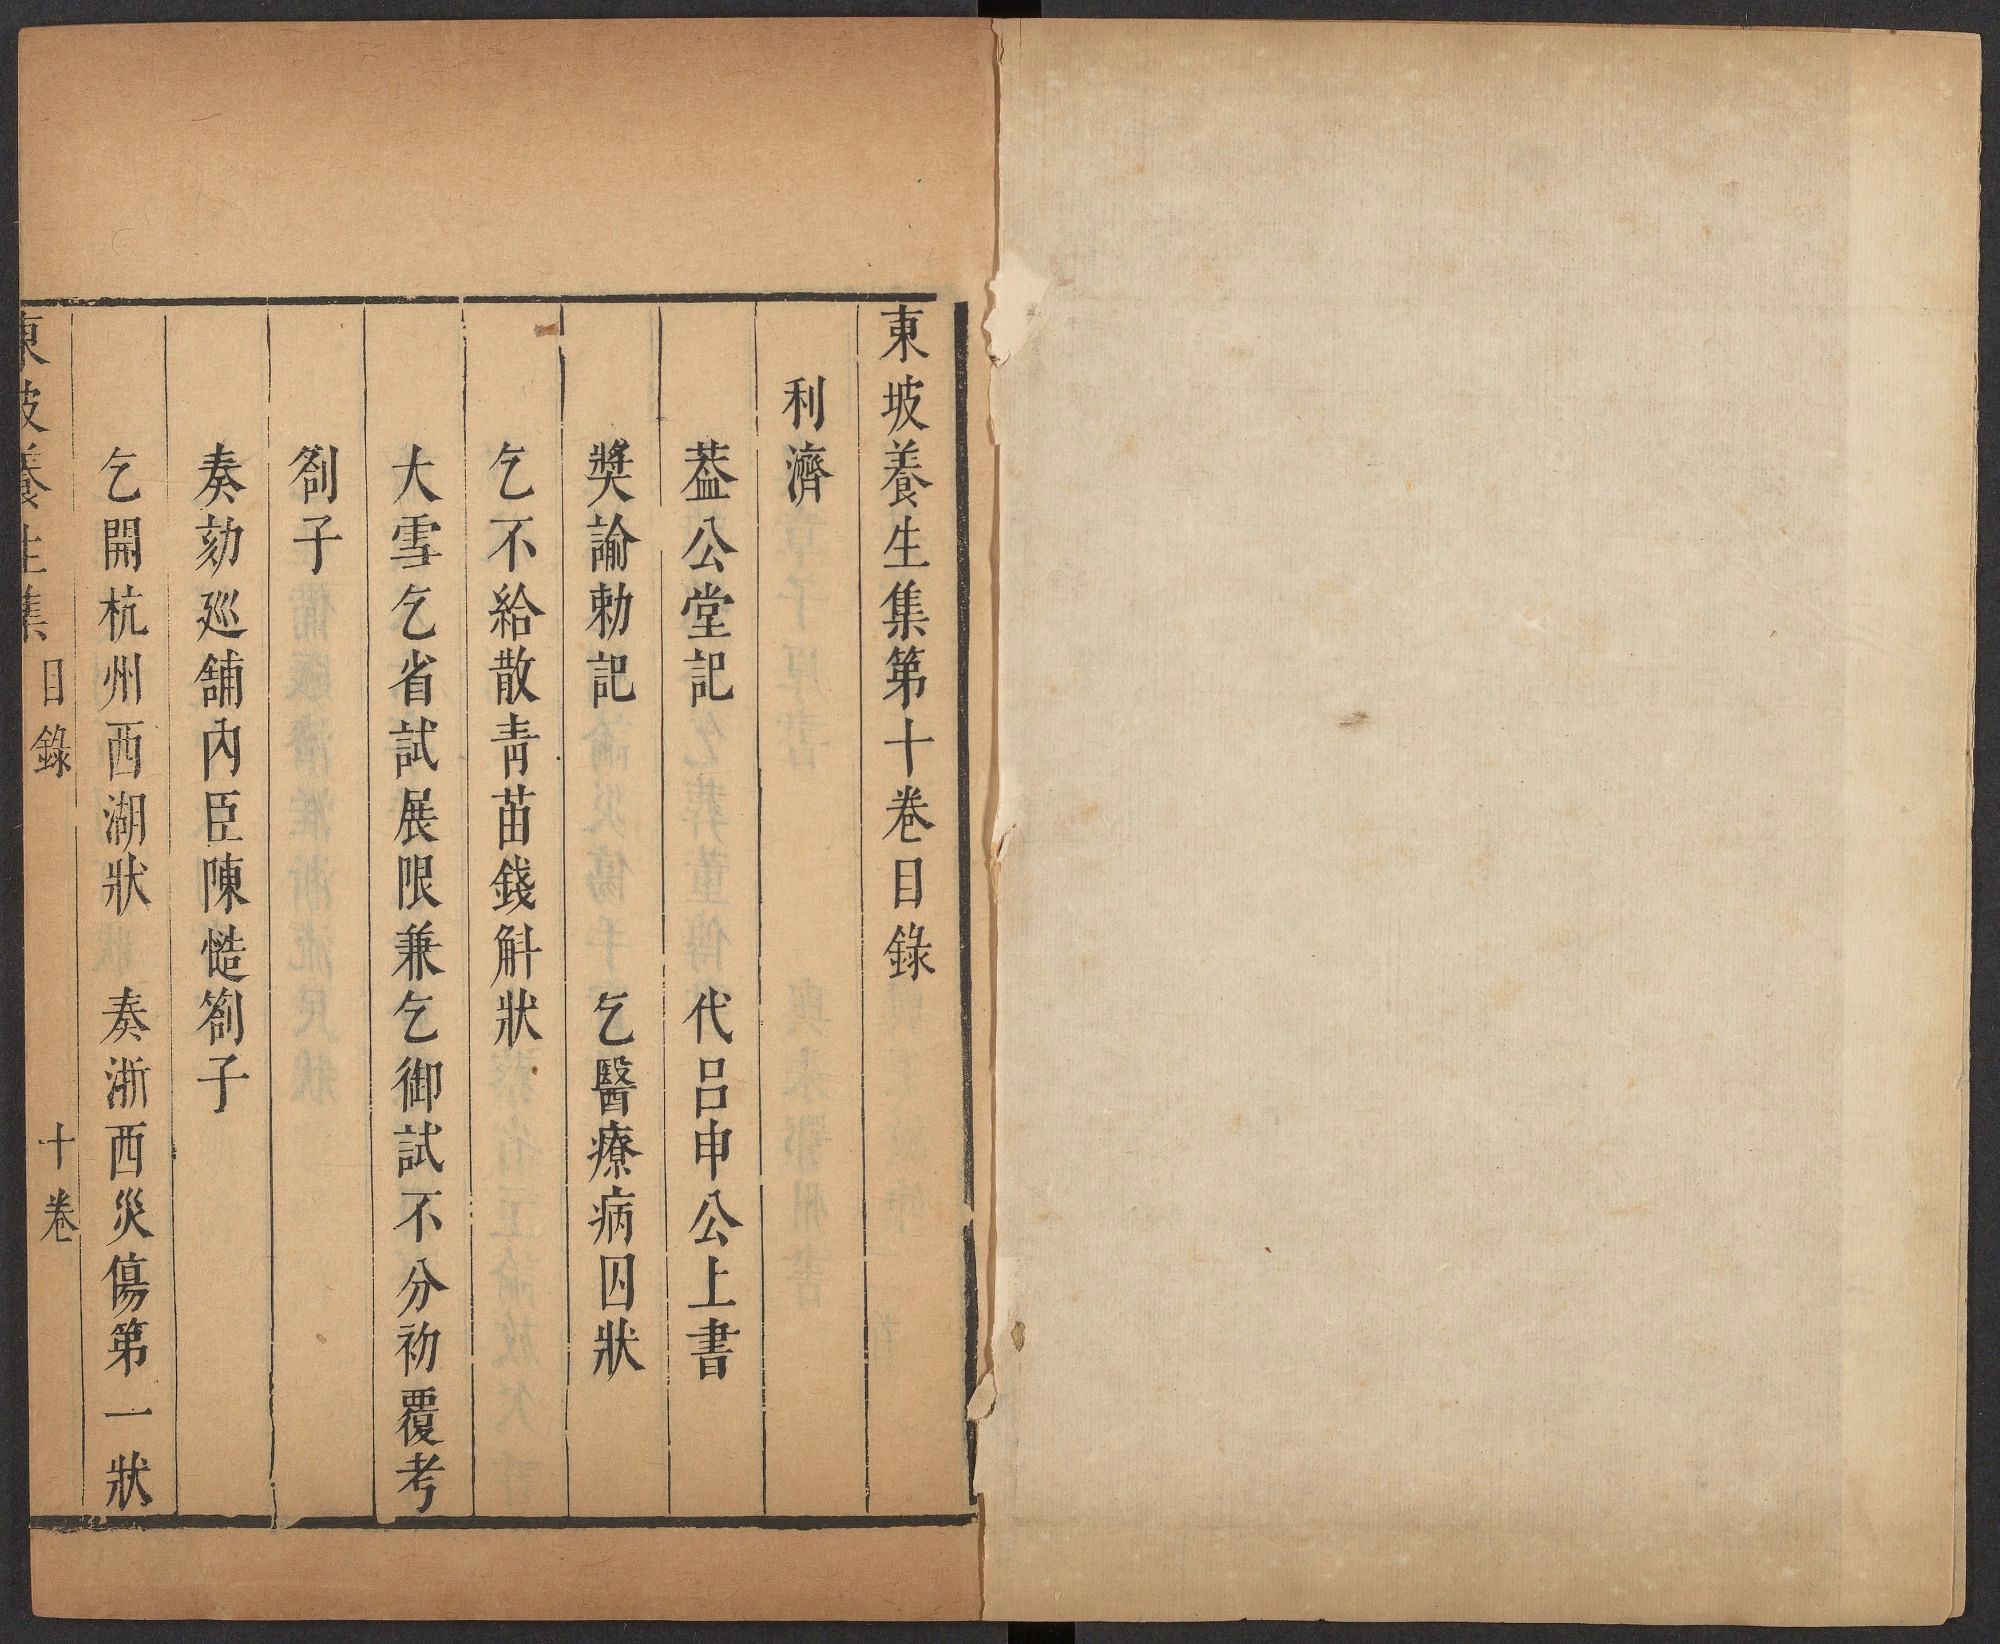 東坡養生集第十卷目錄
利濟
葢公堂記 代呂申公上書
獎諭勅記 乞醫療病囚狀
乞不給散青苗錢斛狀
大雪乞省試展限兼乞御試不分初覆考
劄子
奏劾廵舖內臣陳慥劄子
乞開杭州西湖狀 奏浙西災傷第一狀
東坡養生集 目錄 十卷